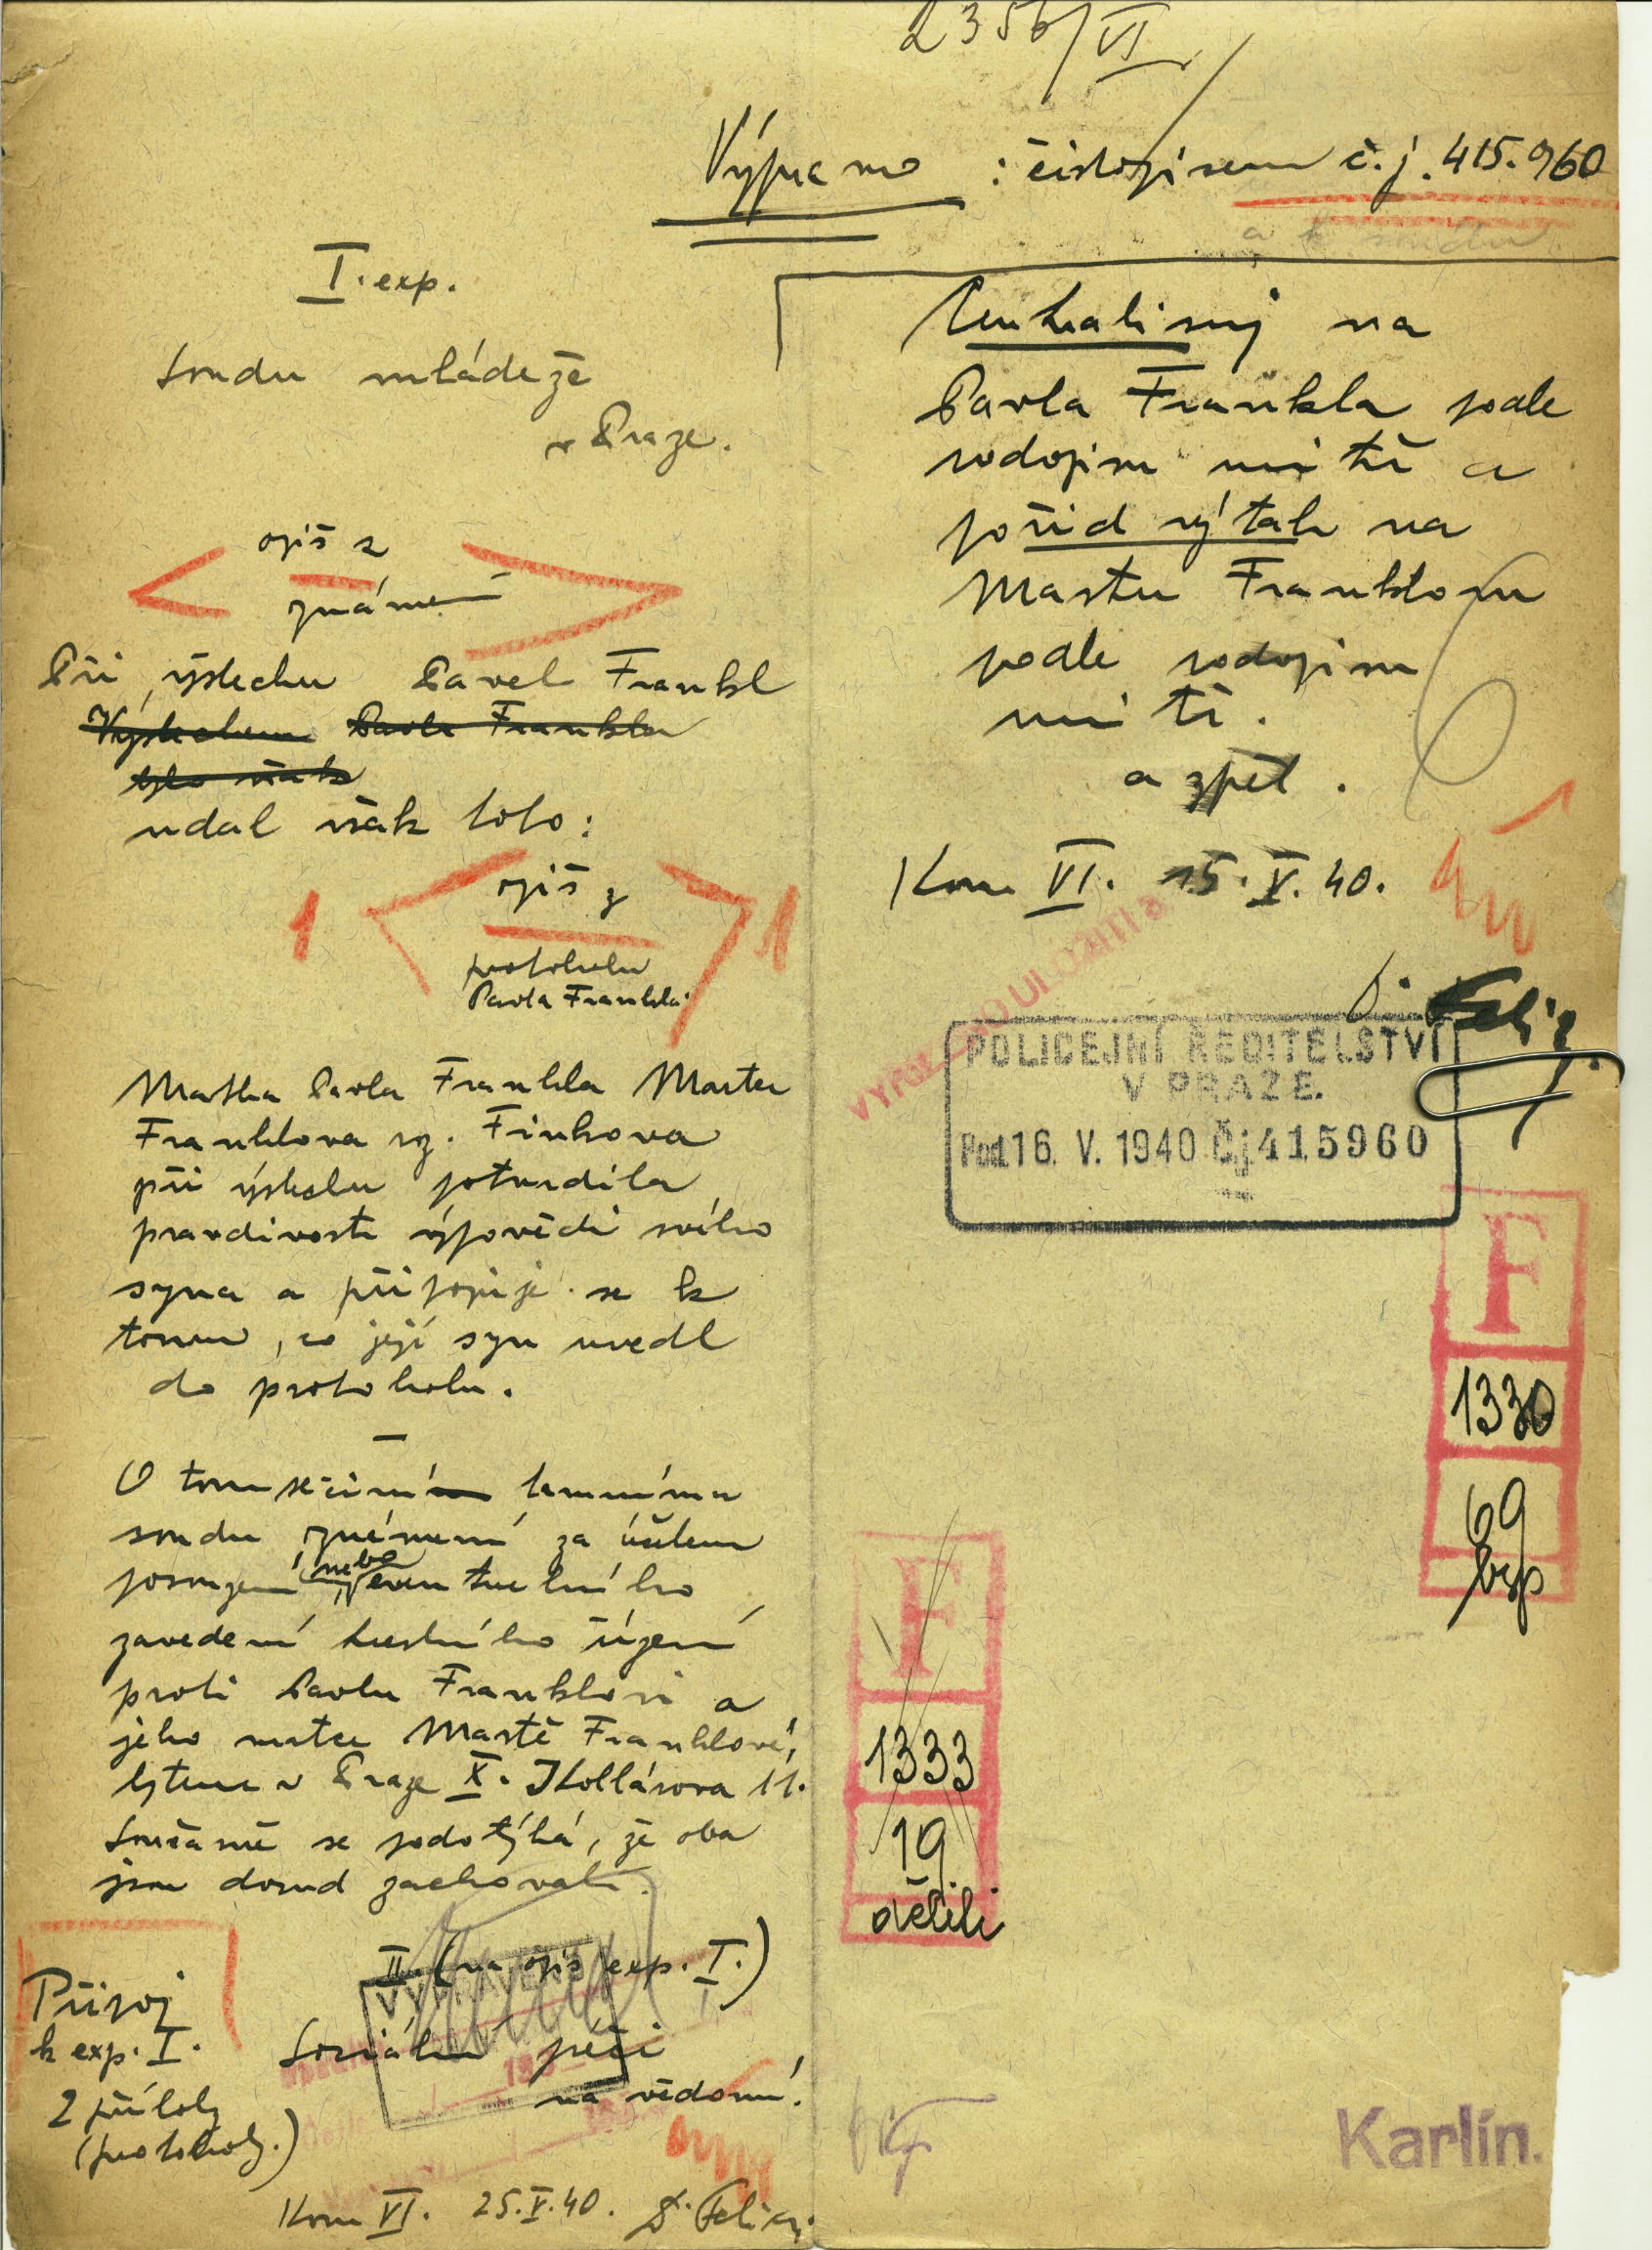 2356/VI
Vypraveno : čistopisem č.j. 415.960
I. exp.
Soudu mládeže
v Praze.
opiš z
známení
Při výslechu Pavel Frankl
Výslechem Pavla Frankla
bylo však
udal však toto:
1 opiš z 1
protokolu
Pavla Frankla
Matka Pavla Frankla Marta
Franklova roz. Finkova
při výslechu potvrdila
pravdivost výpovědi svého
syna a připojuje se k
tomu, co její syn uvedl
do protokolu.
O tom se činí tamnímu
soudu oznámení za účelem
posouzení nebo eventuelního
zavedení trestního řízení
proti Pavlu Franklovi a
jeho matce Martě Franklové,
bytem v Praze X. Kollárova 11.
Současně se podotýká, že oba
jsou dosud zachovalí.
II. (na opis exp. I.)
VYPRAVENO
Sociální péči
na vědomí.
Připoj
k exp. I.
2 přílohy
(protokoly.)
Kom VI. 25.V.40.
na
Pavla Frankla podle
rodopisu uvnitř a
pořid výtah na
Martu Franklovou
podle rodopisu
uvnitř.
a zpět.
Kom VI. 15.V.40.
POLICEJNÍ ŘEDITELSTVÍ
V PRAZE.
Pod. 16. V. 1940 Č.j. 415960
F
1330
69
bzp
F
1333
19
děleli
Karlín.